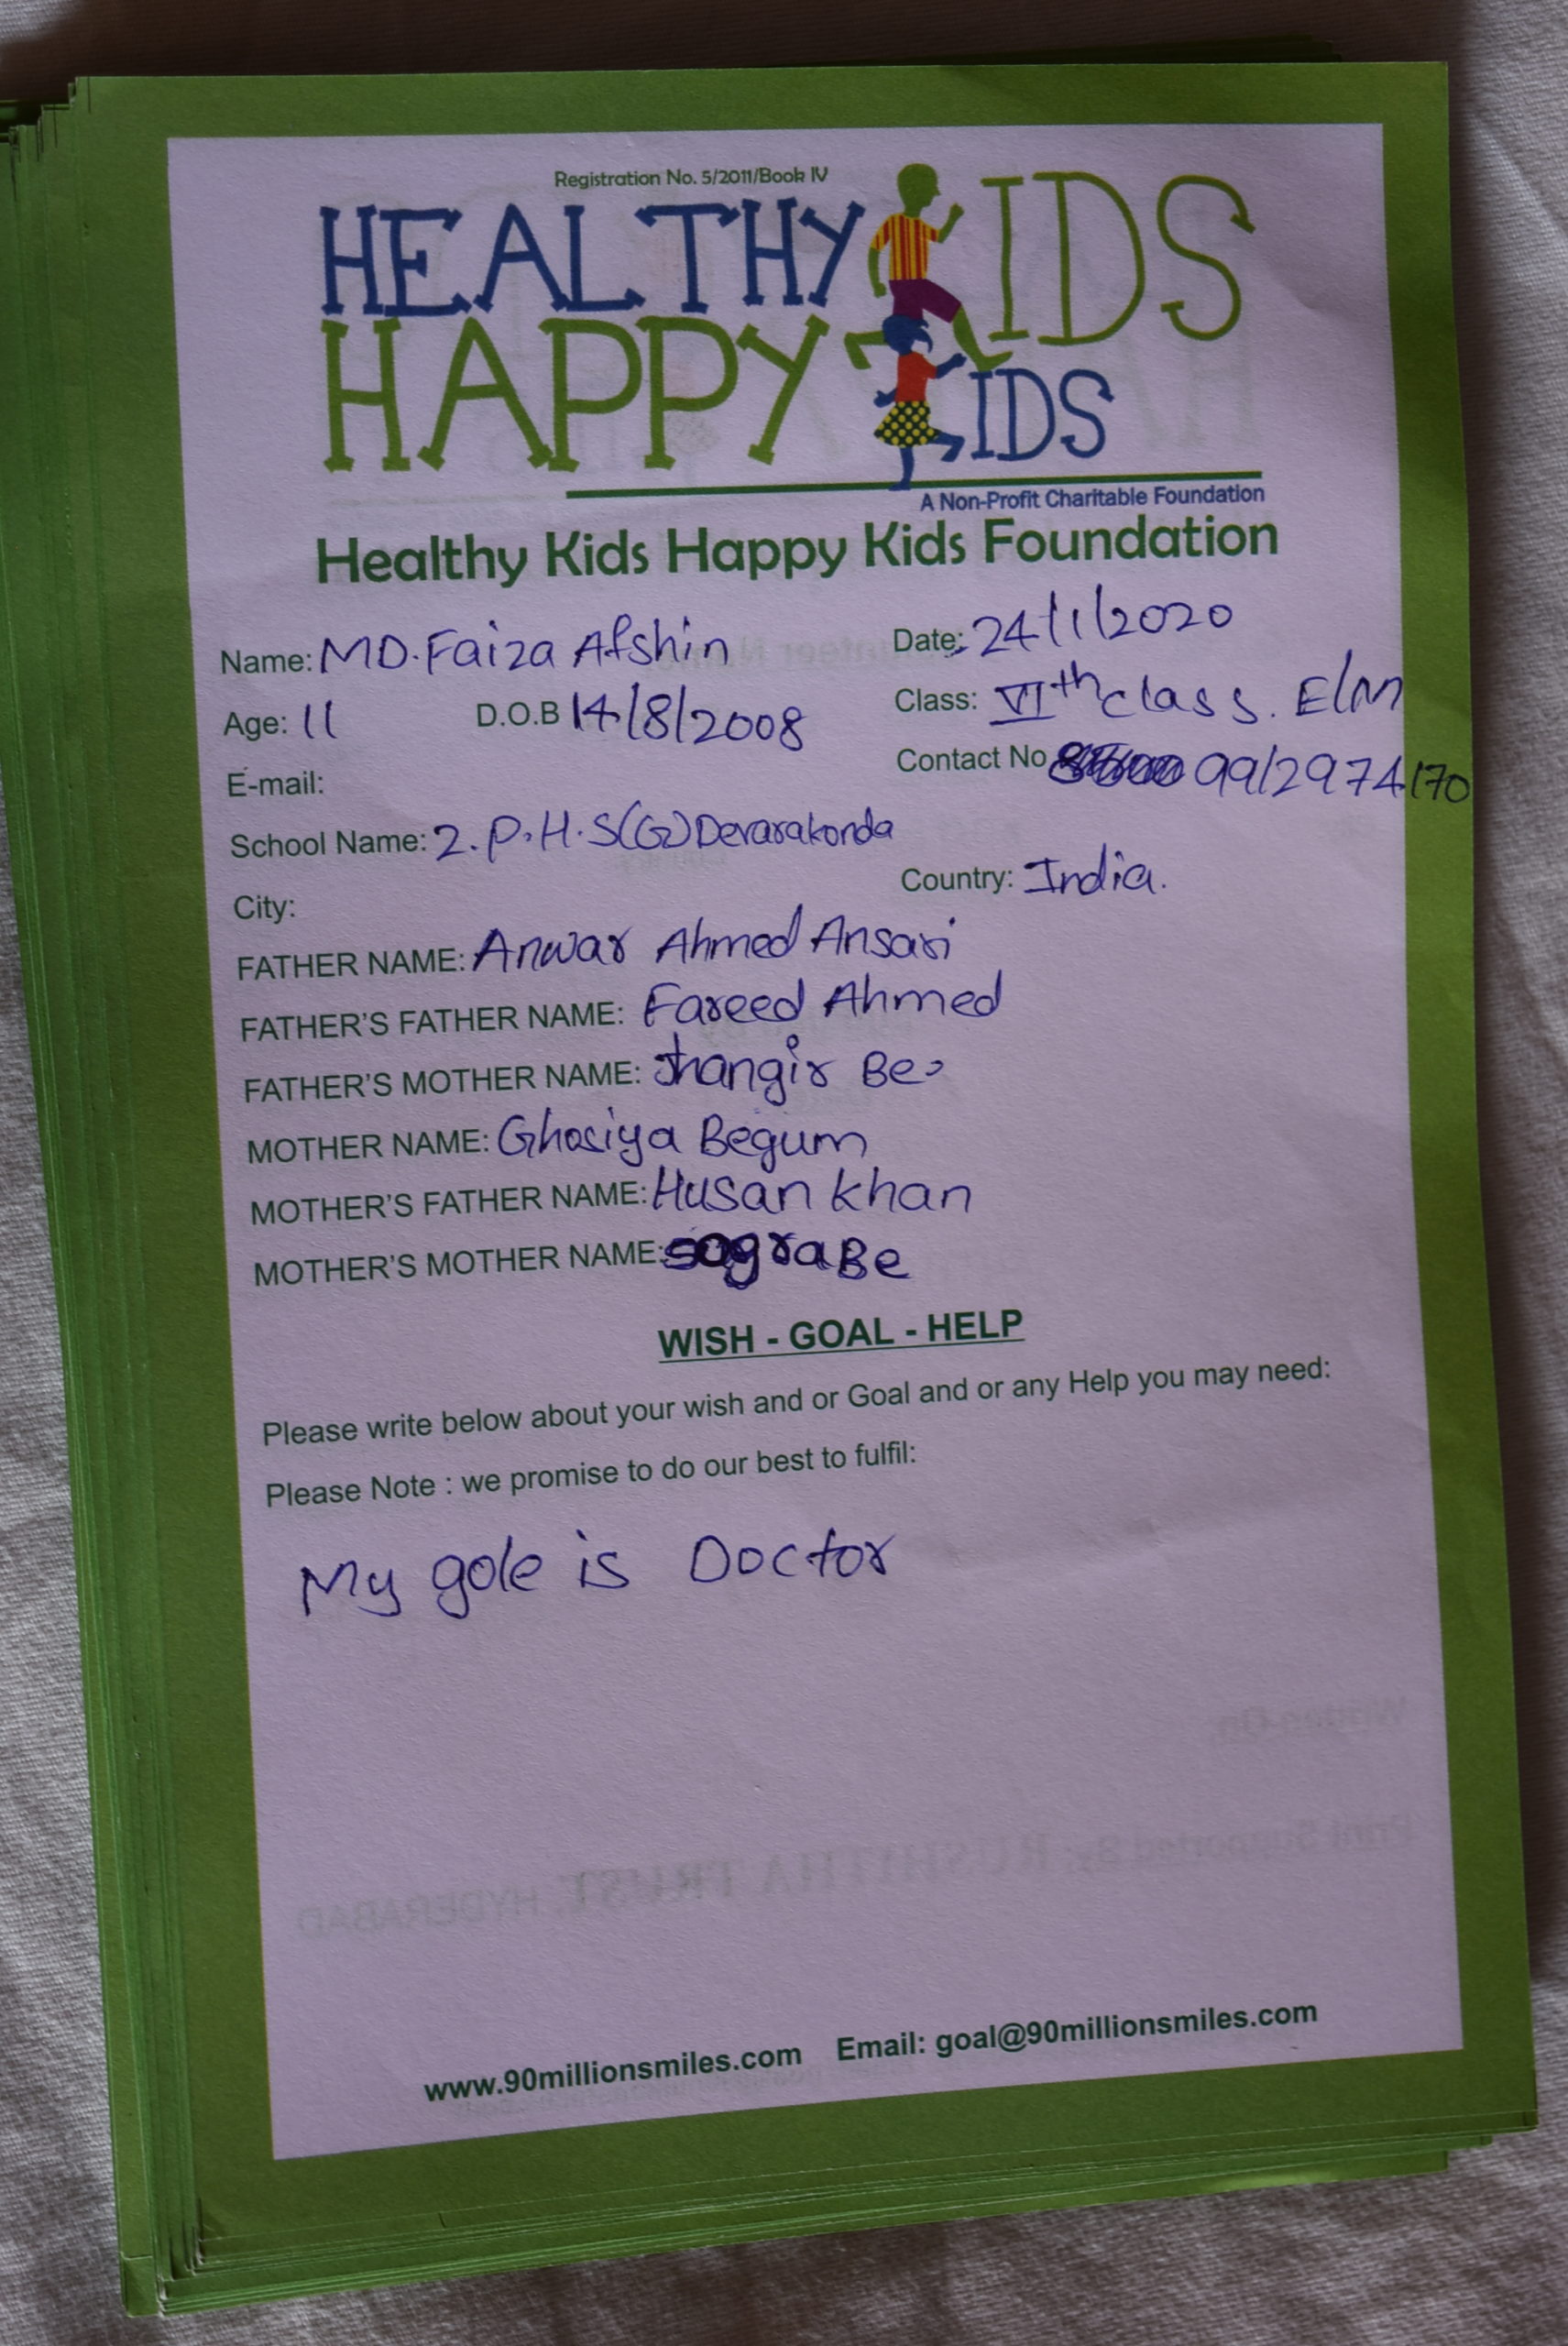 Registration No. 5/2011/Book IV
HEALTHY KIDS
HAPPY KIDS
A Non-Profit Charitable Foundation
Healthy Kids Happy Kids Foundation
Name: MD. Faiza Afshin Date: 24/1/2020
Age: 11 D.O.B 14/8/2008 Class: VIth class. E/M
E-mail: Contact No 9912974170
School Name: 2.P.H.S(G) Devarakonda
City: Country: India.
FATHER NAME: Anwar Ahmed Ansari
FATHER'S FATHER NAME: Fareed Ahmed
FATHER'S MOTHER NAME: Jhangir Be
MOTHER NAME: Ghosiya Begum
MOTHER'S FATHER NAME: Husan khan
MOTHER'S MOTHER NAME: sograBe
WISH - GOAL - HELP
Please write below about your wish and or Goal and or any Help you may need:
Please Note : we promise to do our best to fulfil:
My gole is Doctor
www.90millionsmiles.com Email: goal@90millionsmiles.com